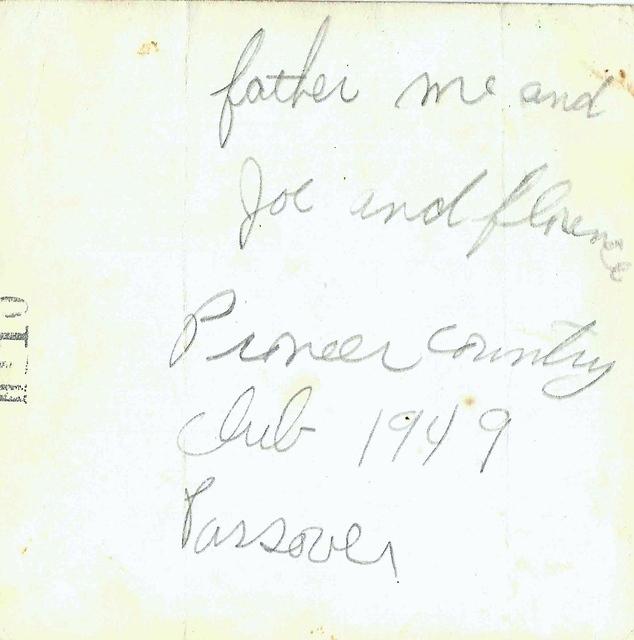 father me and
Joe and florence
Pioneer Country
Club 1949
Passover